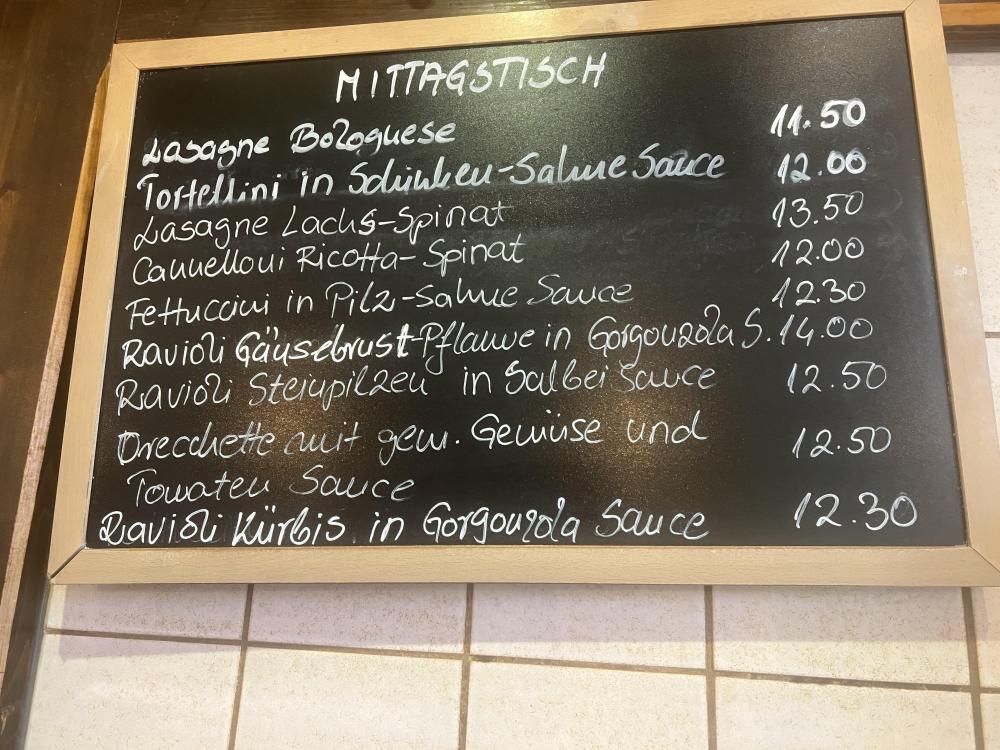 MITTAGSTISCH
Lasagne Bolognese 11.50
Tortellini in Schinken-Sahne Sauce 12.00
Lasagne Lachs-Spinat 13.50
Cannelloni Ricotta-Spinat 12.00
Fettuccini in Pilz-Sahne Sauce 12.30
Ravioli Gänsebrust-Pflaume in Gorgonzola S. 14.00
Ravioli Steinpilzen in Salbei Sauce 12.50
Orecchette mit gem. Gemüse und 12.50
Tomaten Sauce
Ravioli Kürbis in Gorgonzola Sauce 12.30